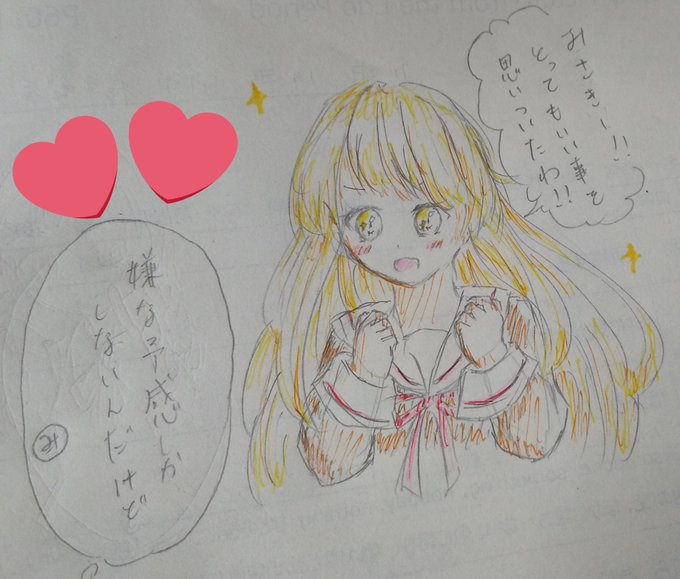 みさきー!!
とってもいい事を
思いついたわ!!
嫌な予感しか
しないんだけど
み